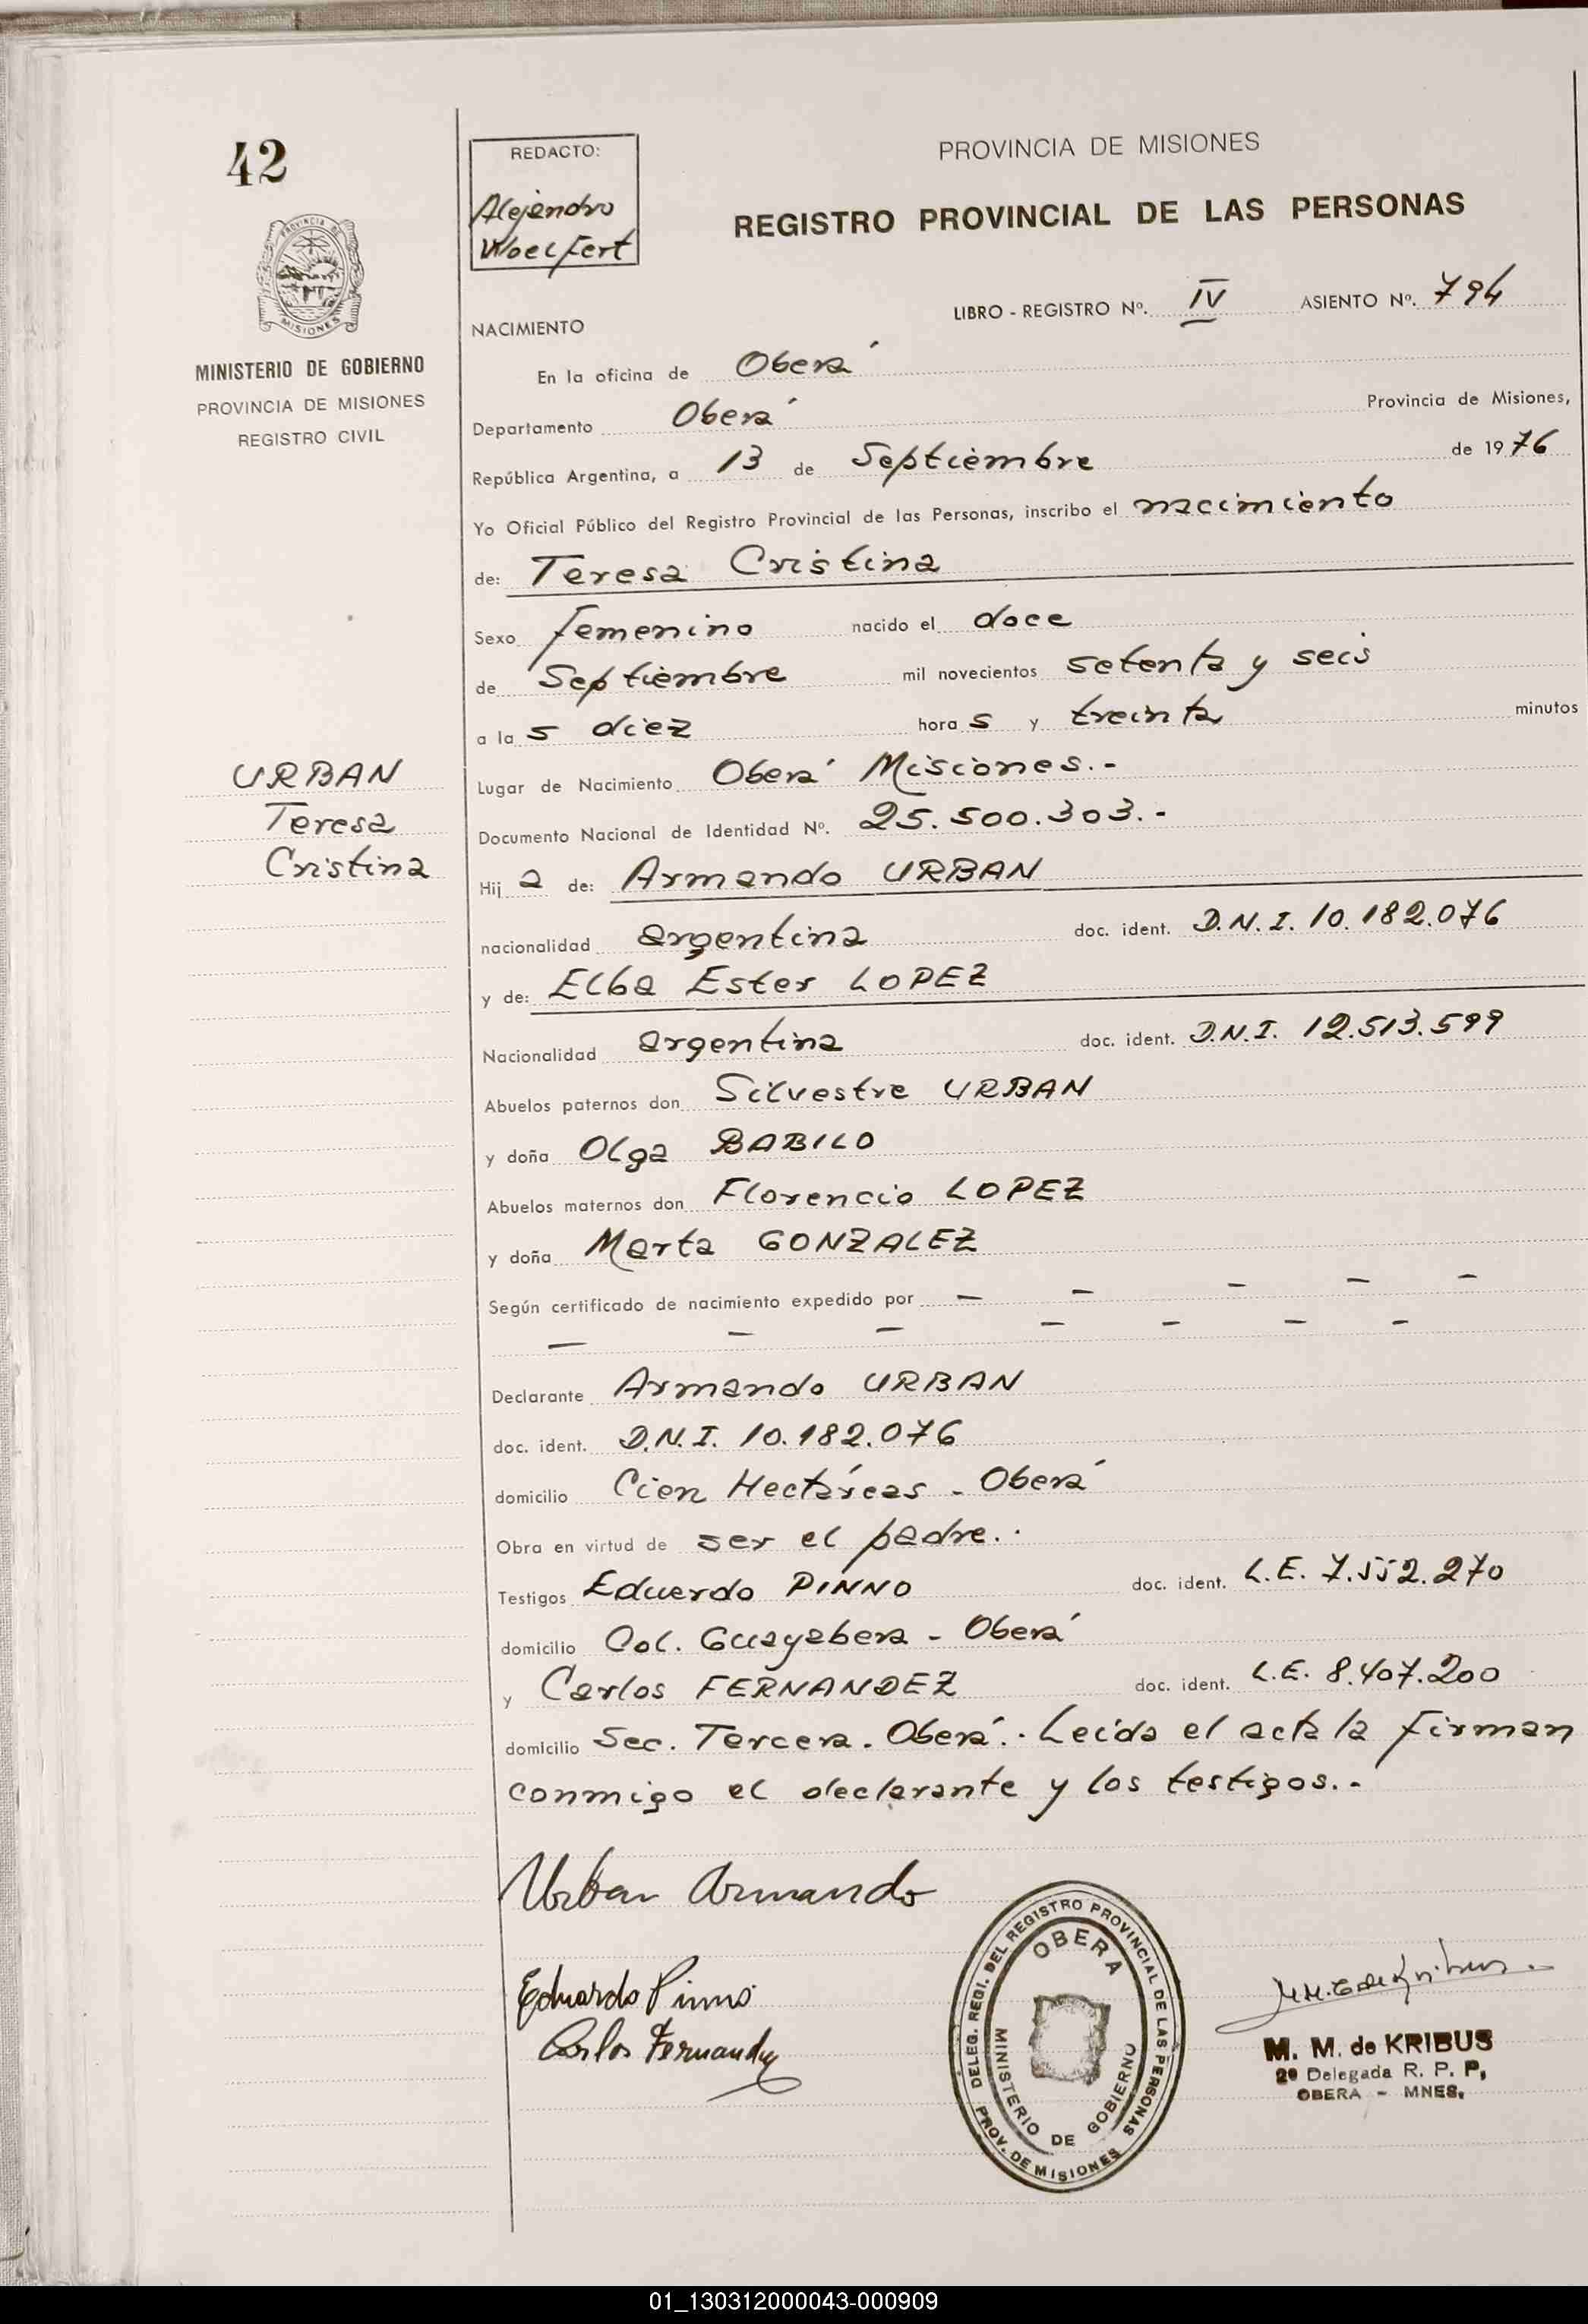 42
PROVINCIA DE MISIONES
MINISTERIO DE GOBIERNO
PROVINCIA DE MISIONES
REGISTRO CIVIL
URBAN
Teresa
Cristina
REDACTO:
Alejandro
Woelfert
PROVINCIA DE MISIONES
REGISTRO PROVINCIAL DE LAS PERSONAS
LIBRO - REGISTRO Nº. IV ASIENTO Nº. 794
NACIMIENTO
En la oficina de Oberá
Departamento Oberá Provincia de Misiones,
República Argentina, a 13 de Septiembre de 1976
Yo Oficial Público del Registro Provincial de las Personas, inscribo el nacimiento
de: Teresa Cristina
Sexo femenino nacido el doce
de Septiembre mil novecientos setenta y seis
a la s diez hora s y treinta minutos
Lugar de Nacimiento Oberá Misiones.-
Documento Nacional de Identidad Nº. 25.500.303.-
Hij a de: Armando URBAN
nacionalidad argentina doc. ident. D.N.I. 10.182.076
y de: Elba Ester LOPEZ
Nacionalidad argentina doc. ident. D.N.I. 12.513.599
Abuelos paternos don Silvestre URBAN
y doña Olga BABILO
Abuelos maternos don Florencio LOPEZ
y doña Marta GONZALEZ
Según certificado de nacimiento expedido por — — — — —
— — — — — — —
Declarante Armando URBAN
doc. ident. D.N.I. 10.182.076
domicilio Cien Hectáreas - Oberá
Obra en virtud de ser el padre.-
Testigos Eduardo PINNO doc. ident. L.E. 7.552.270
domicilio Col. Guayabera - Oberá
y Carlos FERNANDEZ doc. ident. L.E. 8.407.200
domicilio Sec. Tercera. Oberá.- Leída el acta la firman
conmigo el declarante y los testigos.-
Urban Armando
Eduardo Pinno
Carlos Fernandez
DELEG. REGI. DEL REGISTRO PROVINCIAL DE LAS PERSONAS
OBERA
MINISTERIO DE GOBIERNO
PROV. DE MISIONES
M. M. de KRIBUS
2º Delegada R. P. P.
OBERA - MNES.
01_130312000043-000909